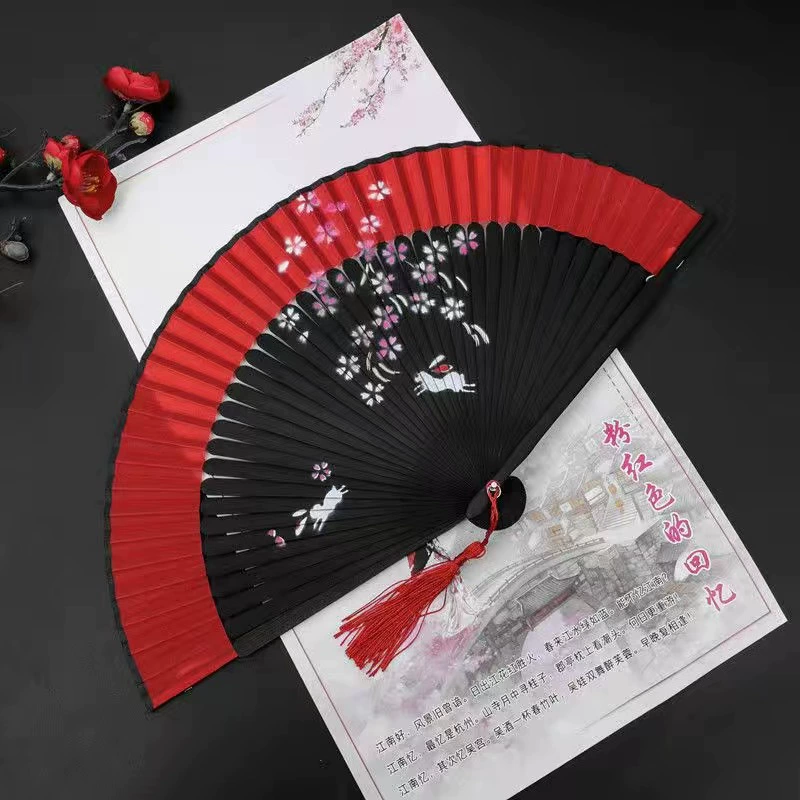 粉红色的回忆
江南好，风景旧曾谙。日出江花红胜火，春来江水绿如蓝。能不忆江南？
江南忆，最忆是杭州。山寺月中寻桂子，郡亭枕上看潮头。何日更重游！
江南忆，其次忆吴宫。吴酒一杯春竹叶，吴娃双舞醉芙蓉。早晚复相逢！